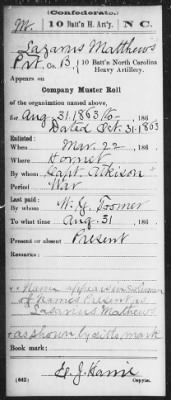 (Confederate.)
M. 10 Batt'n H. Art'y. N C.
Lazarus Matthews
Pvt., Co. B, 10 Batt'n North Carolina
Heavy Artillery.
Appears on
Company Muster Roll
of the organization named above,
for Aug. 31. 1863 to , 186 .
Dated Oct. 31. 1863
Enlisted:
When Mar. 22 , 186 .
Where Hornet
By whom Capt. Atkison
Period War
Last paid:
By whom W. G. Toomer
To what time Aug. 31 , 186 .
Present or absent Present
Remarks:
Name appears in Column
of Names Present as
Lazarus Mathews
as shown by ditto mark
Book mark:
(642)
Copyist.